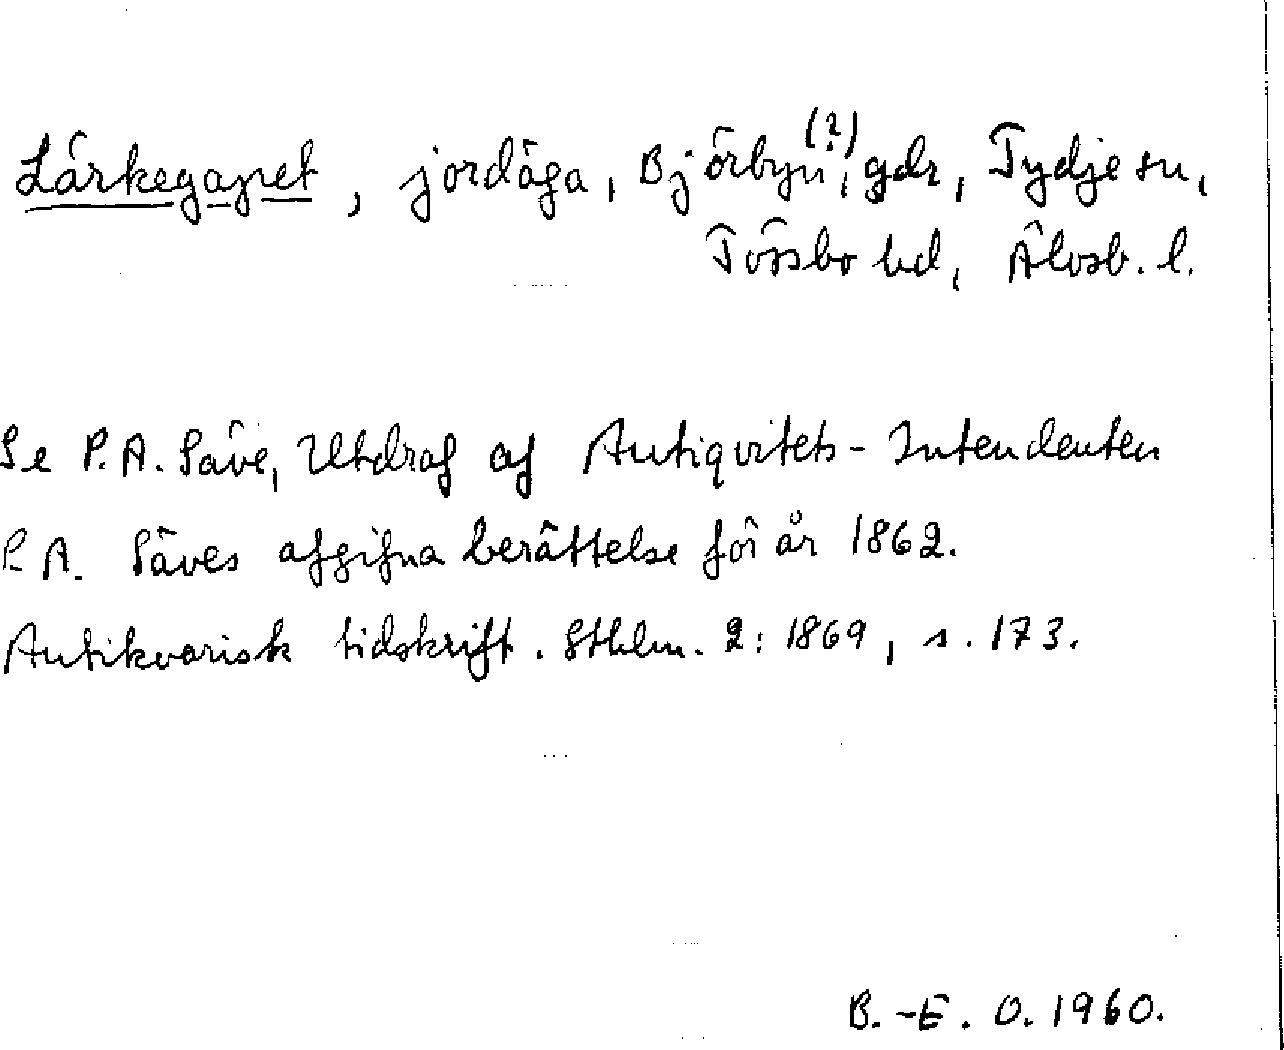 Lärkegapet, jordäga, Björbyn(?), gdr, Tydje sn,
Tössbo hd, Älvsb. l.
Se P. A. Säve, Utdraf af Antiqvitets-Intendenten
P. A. Säves afgifna berättelse för år 1862.
Antikvarisk tidskrift. Sthlm. 2: 1869, s. 173.
B.-E. O. 1960.